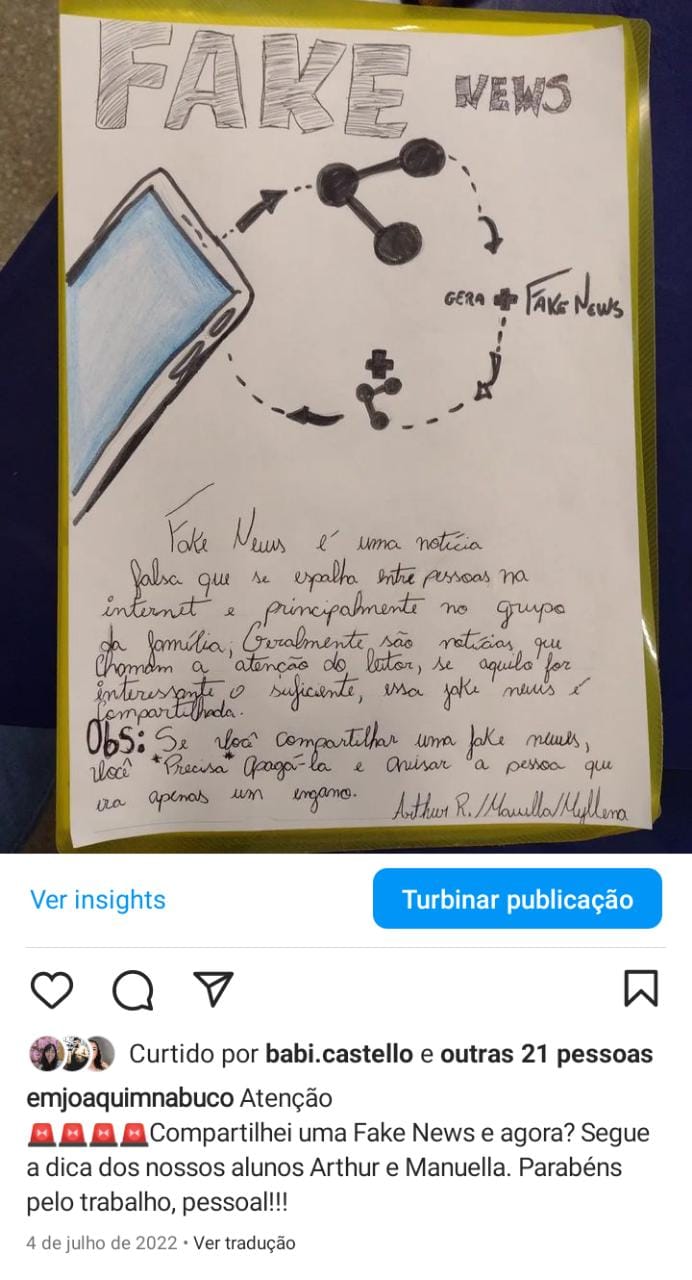 FAKE NEWS
GERA + FAKE NEWS
Fake News é uma notícia
falsa que se espalha entre pessoas na
internet e principalmente no grupo
da família; Geralmente são notícias que
chamam a atenção do leitor, se aquilo for
interessante o suficiente, essa fake news é
compartilhada.
Obs: Se você compartilhar uma fake news,
você *Precisa* apagá-la e avisar a pessoa que
era apenas um engano.
Arthur R./Manuella/Myllena
Ver insights
Turbinar publicação
Curtido por babi.castello e outras 21 pessoas
emjoaquimnabuco Atenção
🚨🚨🚨🚨Compartilhei uma Fake News e agora? Segue
a dica dos nossos alunos Arthur e Manuella. Parabéns
pelo trabalho, pessoal!!!
4 de julho de 2022 • Ver tradução